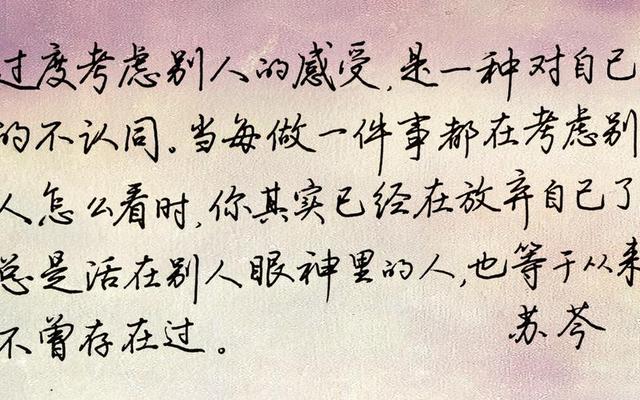 过度考虑别人的感受,是一种对自己
的不认同。当每做一件事都在考虑别
人怎么看时,你其实已经在放弃自己了
总是活在别人眼神里的人,也等于从来
不曾存在过。
苏芩